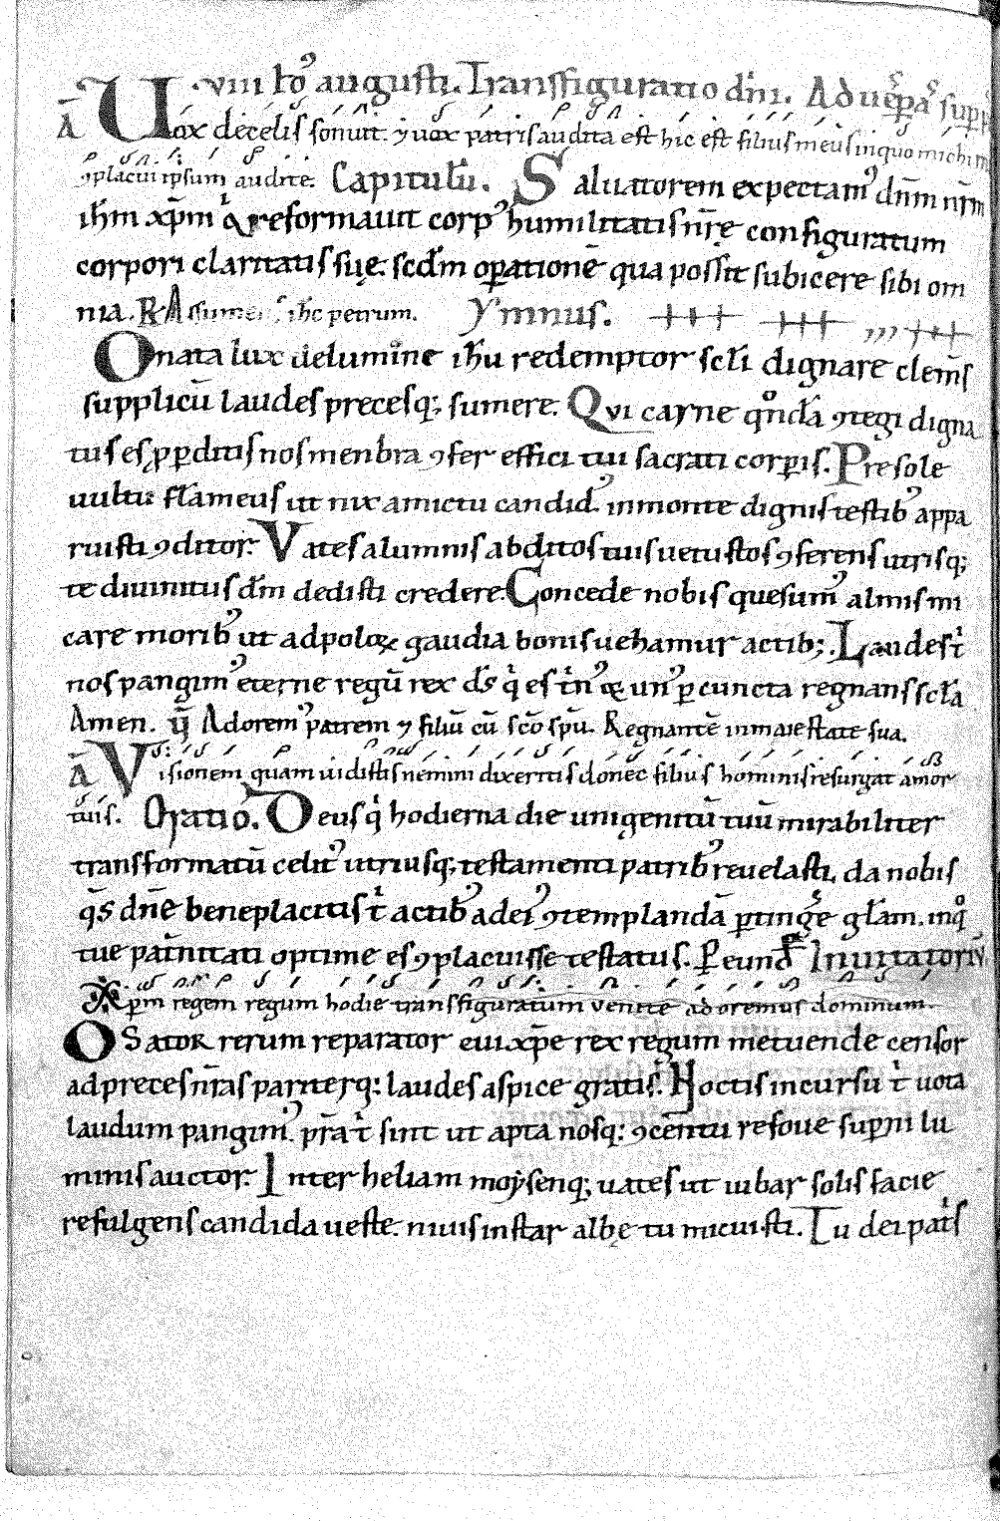 ·viii id᷒ augusti. Transfiguratio dn̄i. Ad ueꝑaˢ suꝑ
A̅ Uox de celis sonuit. ⁊ uox patris audita est hic est filius meus in quo michi
ꝯplacui ipsum audite. Capitulū. Saluatorem expectam᷒ dn̄m nr̄m
ih̄m xp̄m qͥ reformauit corp᷒ humilitatis nr̄ę configuratum
corpori claritatis suę. scd̄m oꝑationē qua possit subicere sibi om
nia. R Assumens ih̄c petrum. Ymnus.
O nata lux de lumine ih̄u redemptor scl̄i dignare clem̄s
supplicū laudes precesq; sumere. Qui carne qͦndā ꝯtegi digna
tus es ꝓ ꝑditis nos menbra ꝯfer effici tui sacrati corꝑis. Pre sole
uultu flameus ut nix amictu candid᷒ in monte dignis testib᷒ appa
ruisti ꝯditor. Vates alumnis abditos tuis uetustos ꝯferens utrisq;
te diuinitus dm̄ dedisti credere. Concede nobis quesum᷒ almis mi
care morib᷒ ut ad poloꝝ gaudia bonis uehamur actib; Laudes tͥ
nos pangim᷒ eterne regū rex ds̄ qͥ es tͥn᷒ ⁊ un᷒ ꝑ cuncta regnans scl̄a
Amen. v̄ Adorem᷒ patrem ⁊ filiū cū sc̄o sp̄u. Regnantē in maiestate sua.
A̅ Visionem quam uidistis nemini dixeritis donec filius hominis resurgat a mor
tuis. Oratio. Deus qͥ hodierna die unigenitū tuū mirabiliter
transformatū celit᷒ utriusq; testamenti patrib᷒ reuelasti, da nobis
qs̄ dn̄e beneplacitis tͥ actib᷒ ad ei᷒ ꝯtemplandā ꝑtingͤe gl̄am. in qͦ
tue pat̄nitati optime es ꝯplacuisse testatus. Ꝑ eund̄ Inuitatoriū
Xp̄m regem regum hodie transfiguratum venite adoremus dominum.
O Sator rerum reparator eui xp̄e rex regum metuende censor
ad preces nr̄as pariterq: laudes aspice gratis. Noctis incursu tͥ uota
laudum pangim᷒. pr̄a tͥ sint ut apta nosq: ꝯcentu refoue suꝑni lu
minis auctor. Inter heliam moysenq; uates ut iubar solis facie
refulgens candida ueste. niuis instar albę tu micuisti. Tu dei patͥs